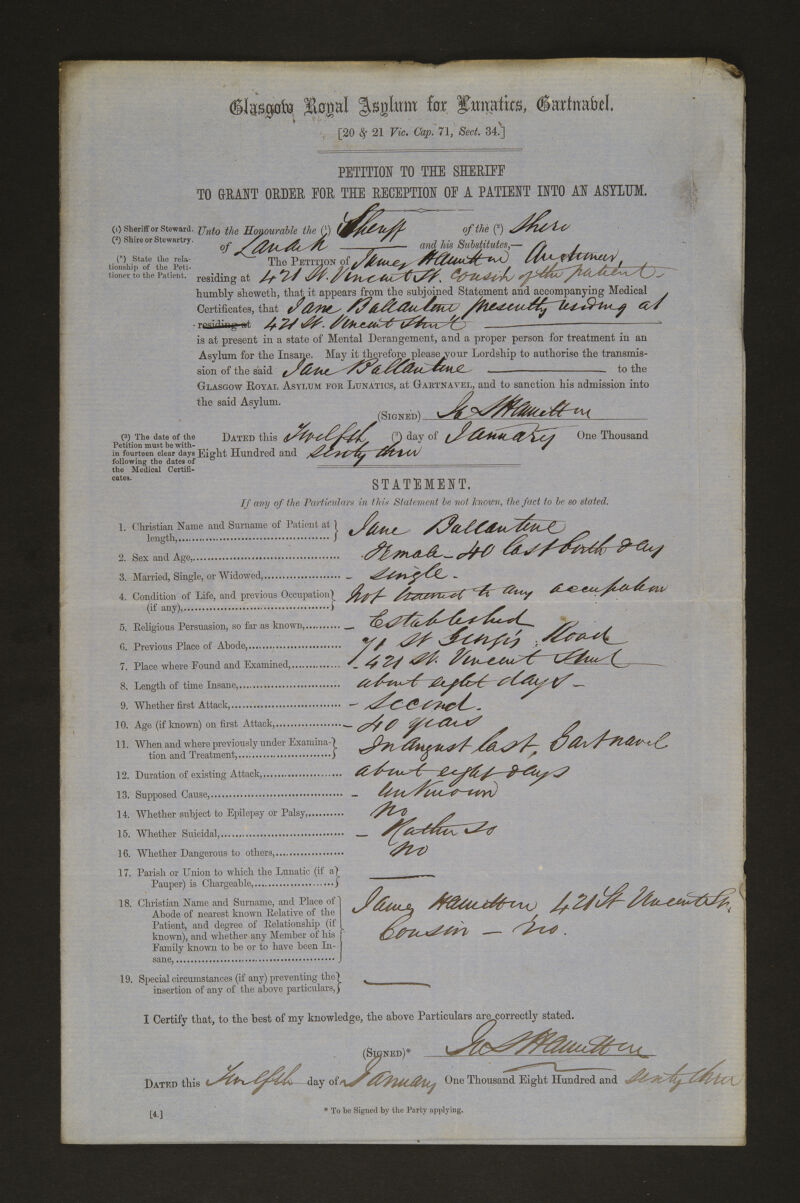 Glasgow Royal Asylum for Lunatics, Gartnabel.
[20 & 21 Vic. Cap. 71, Sect. 34.]
PETITION TO THE SHERIFF
TO GRANT ORDER FOR THE RECEPTION OF A PATIENT INTO AN ASYLUM.
(1) Sheriff or Steward.
(2) Shire or Stewartry.
(*) State the rela-
tionship of the Peti-
tioner to the Patient.
Unto the Honourable the (1) Sheriff of the (2) Shire
of Lanark and his Substitutes,—
The Petition of James Hamilton Auctioneer,
residing at 421 St. Vincent St. Cousin of the patient
humbly sheweth, that it appears from the subjoined Statement and accompanying Medical
Certificates, that Jane Ballantine presently residing at
residing at 421 St. Vincent Street
is at present in a state of Mental Derangement, and a proper person for treatment in an
Asylum for the Insane. May it therefore please your Lordship to authorise the transmis-
sion of the said Jane Ballantine to the
Glasgow Royal Asylum for Lunatics, at Gartnavel, and to sanction his admission into
the said Asylum.
(Signed) Jas Hamilton
(3) The date of the
Petition must be with-
in fourteen clear days
following the dates of
the Medical Certifi-
cates.
Dated this Twelfth (3) day of January One Thousand
Eight Hundred and Sixty three
STATEMENT.
If any of the Particulars in this Statement be not known, the fact to be so stated.
1. Christian Name and Surname of Patient at
length, Jane Ballantine
2. Sex and Age, Female - 40 last birth day
3. Married, Single, or Widowed, - Single -
4. Condition of Life, and previous Occupation
(if any), Not trained to any occupation
5. Religious Persuasion, so far as known, - Established
6. Previous Place of Abode, 71 St George's Road
7. Place where Found and Examined, - 421 St. Vincent Street
8. Length of time Insane, about eight days -
9. Whether first Attack, - Second.
10. Age (if known) on first Attack, - 40 years
11. When and where previously under Examina-
tion and Treatment, In August last, Gartnavel
12. Duration of existing Attack, about eight days
13. Supposed Cause, - Unknown
14. Whether subject to Epilepsy or Palsy, No
15. Whether Suicidal, - Rather so
16. Whether Dangerous to others, No
17. Parish or Union to which the Lunatic (if a
Pauper) is Chargeable, —
18. Christian Name and Surname, and Place of
Abode of nearest known Relative of the
Patient, and degree of Relationship (if
known), and whether any Member of his
Family known to be or to have been In-
sane, James Hamilton, 421 St Vincent St.
Cousin - No.
19. Special circumstances (if any) preventing the
insertion of any of the above particulars, —
I Certify that, to the best of my knowledge, the above Particulars are correctly stated.
(Signed)* Jas Hamilton
Dated this Twelfth day of January One Thousand Eight Hundred and Sixty three
[4.]
* To be Signed by the Party applying.